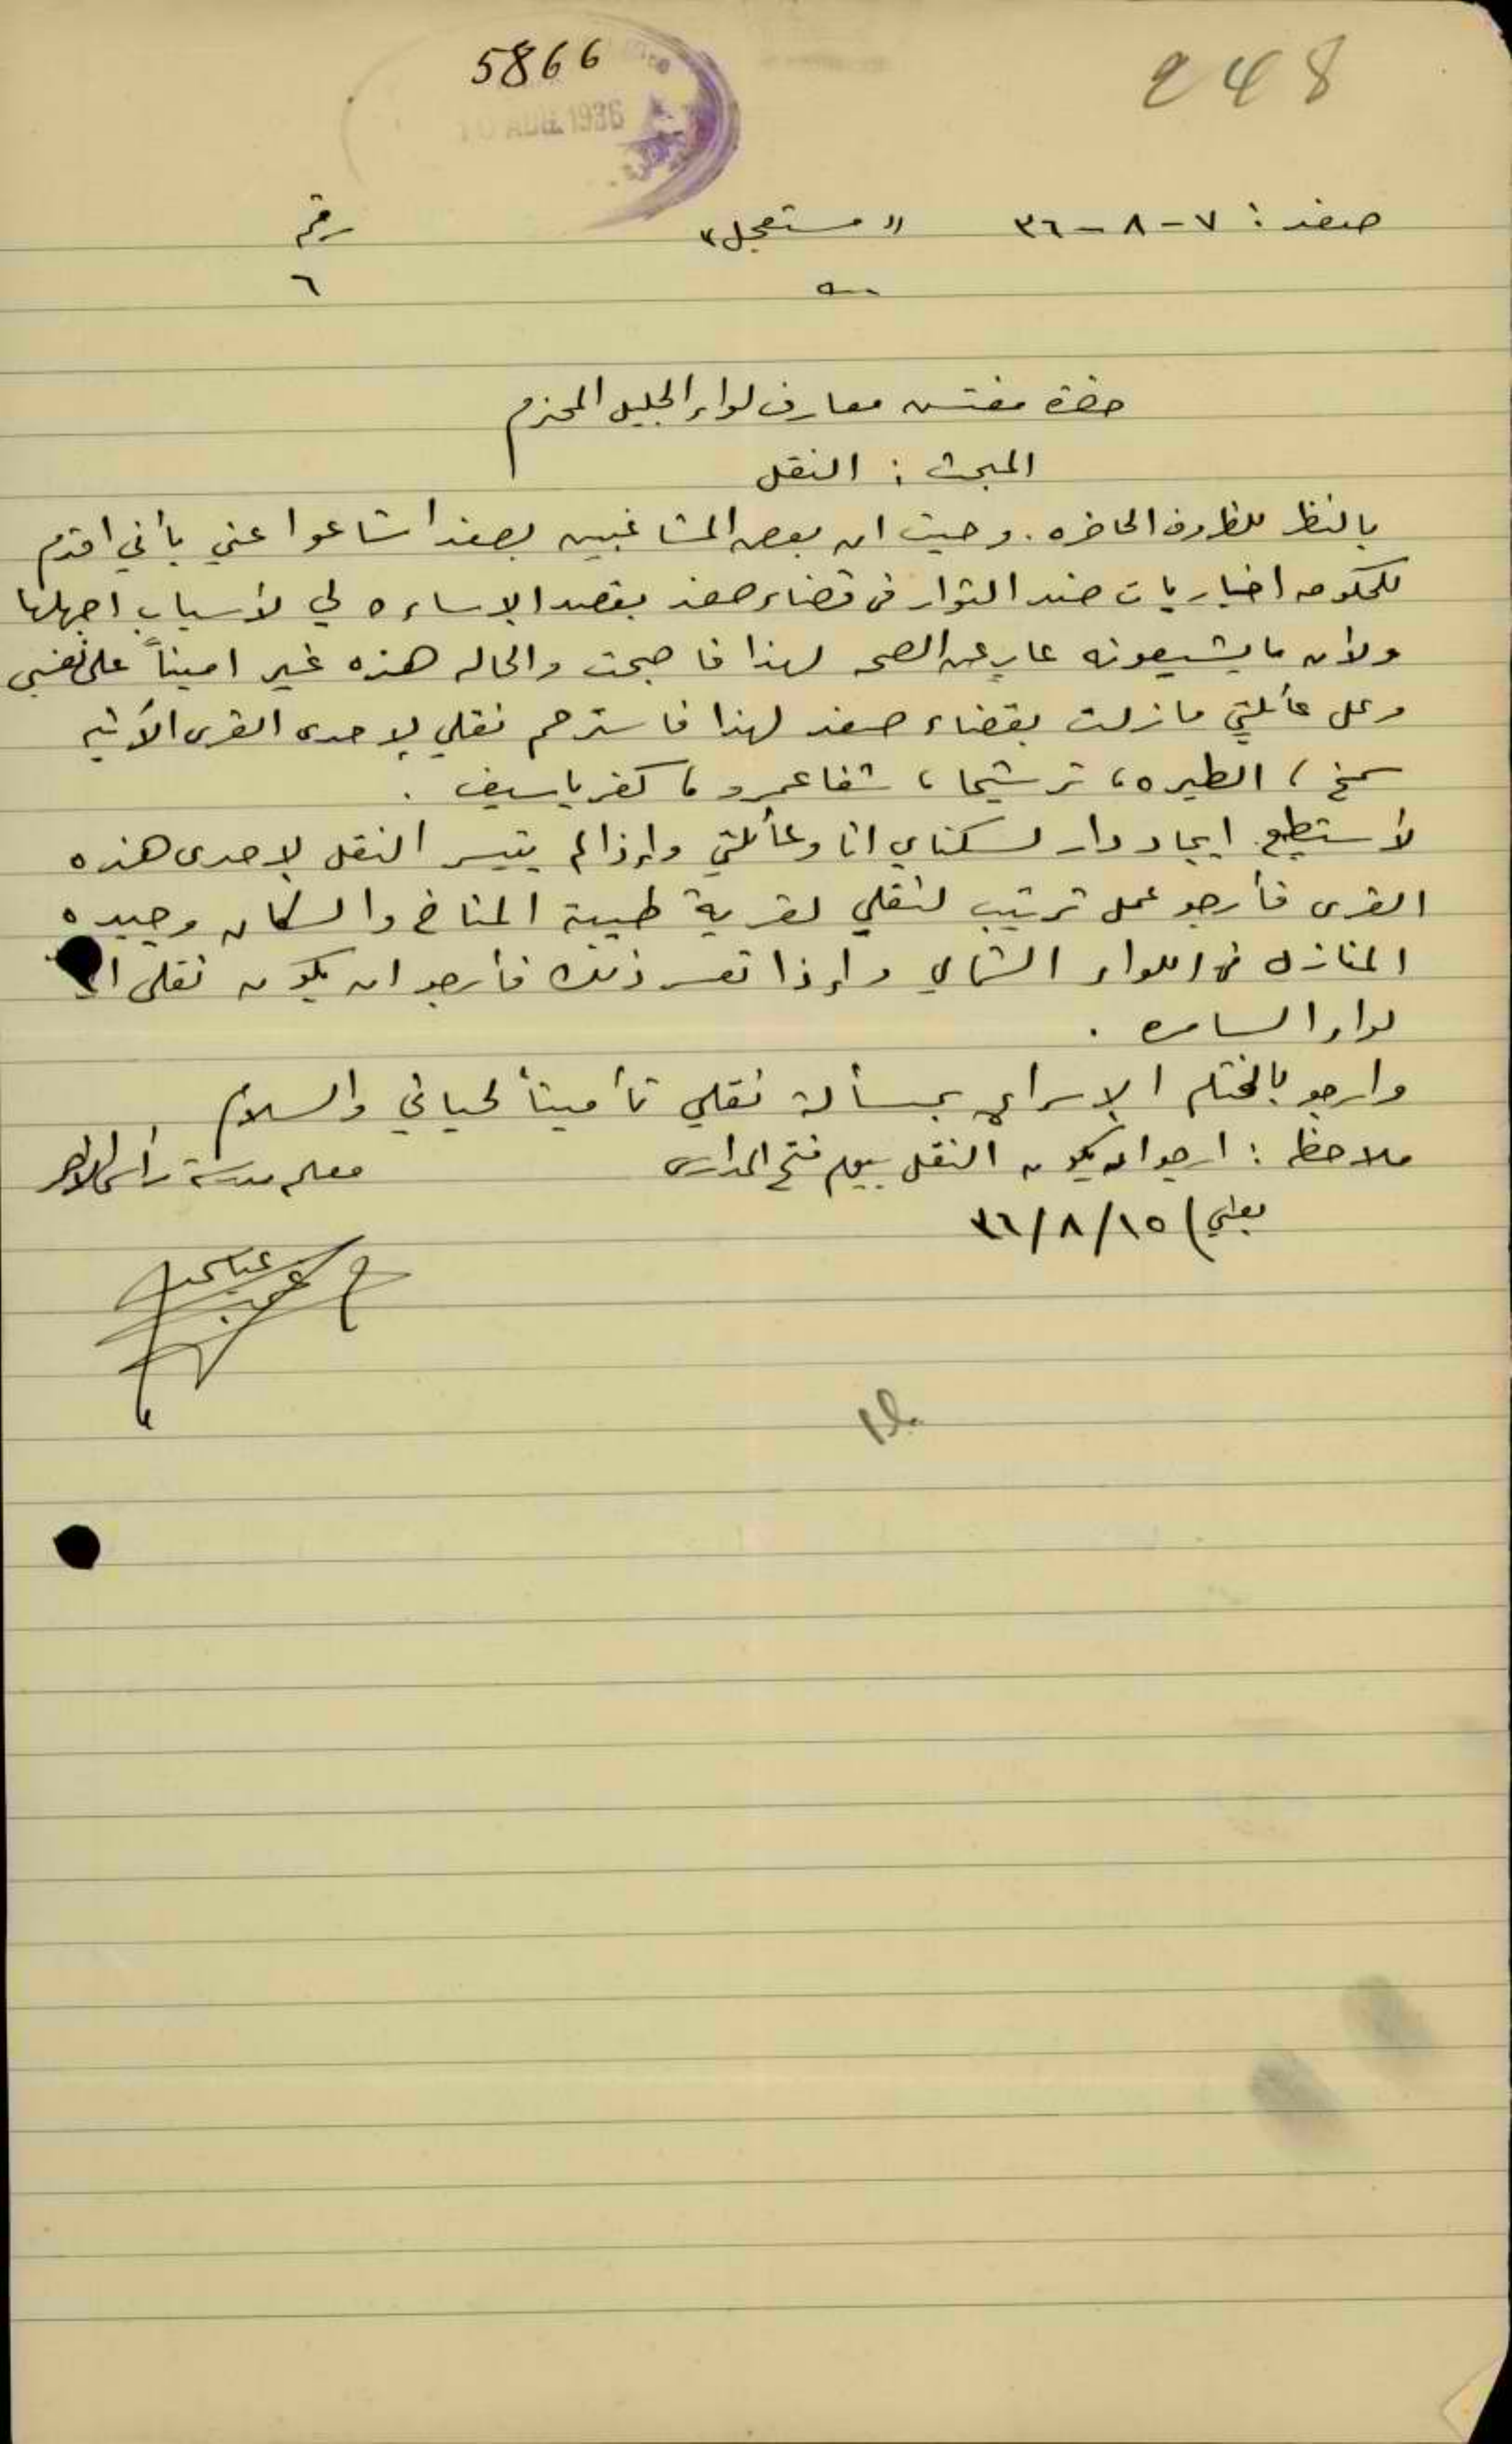 5866
248
10 AUG. 1936
صفد : ٧-٨-٣٦ "مستعجل" رقم
٦
حضرة مفتش معارف لواء الجليل المحترم
المبحث : النقل
بالنظر للظروف الحاضره . وحيث ان بعض المشاغبين بصفد اشاعوا عني بأني اقدم
للحكومه اخباريات ضد الثوار في قضاء صفد بقصد الإساءه لي لأسباب اجهلها
ولأن ما يشيعونه عارٍ عن الصحه لهذا فاصبحت والحاله هذه غير اميناً على نفسي
وعلى عائلتي ما زلت بقضاء صفد لهذا فاسترحم نقلي لإحدى القرى الآتيه
سمخ ، الطيره ، ترشيحا ، شفاعمرو ، كفرياسيف .
لأستطيع ايجاد دار لسكناي انا وعائلتي وإذا لم يتيسر النقل لإحدى هذه
القرى فأرجو عمل ترتيب لنقلي لقرية طيبة المناخ والسكان وجيده
المنازل في اللواء الشمالي وإذا تعسر ذلك فأرجو ان يكون نقلي الى
لواء السامره .
وارجو بالختام الإسراع بمسألة نقلي تأميناً لحياتي والسلام
ملاحظه : ارجو ان يكون النقل بيوم فتح المدارس معلم مدرسة راس الاحمر
يعني) ١٥/٨/٣٦